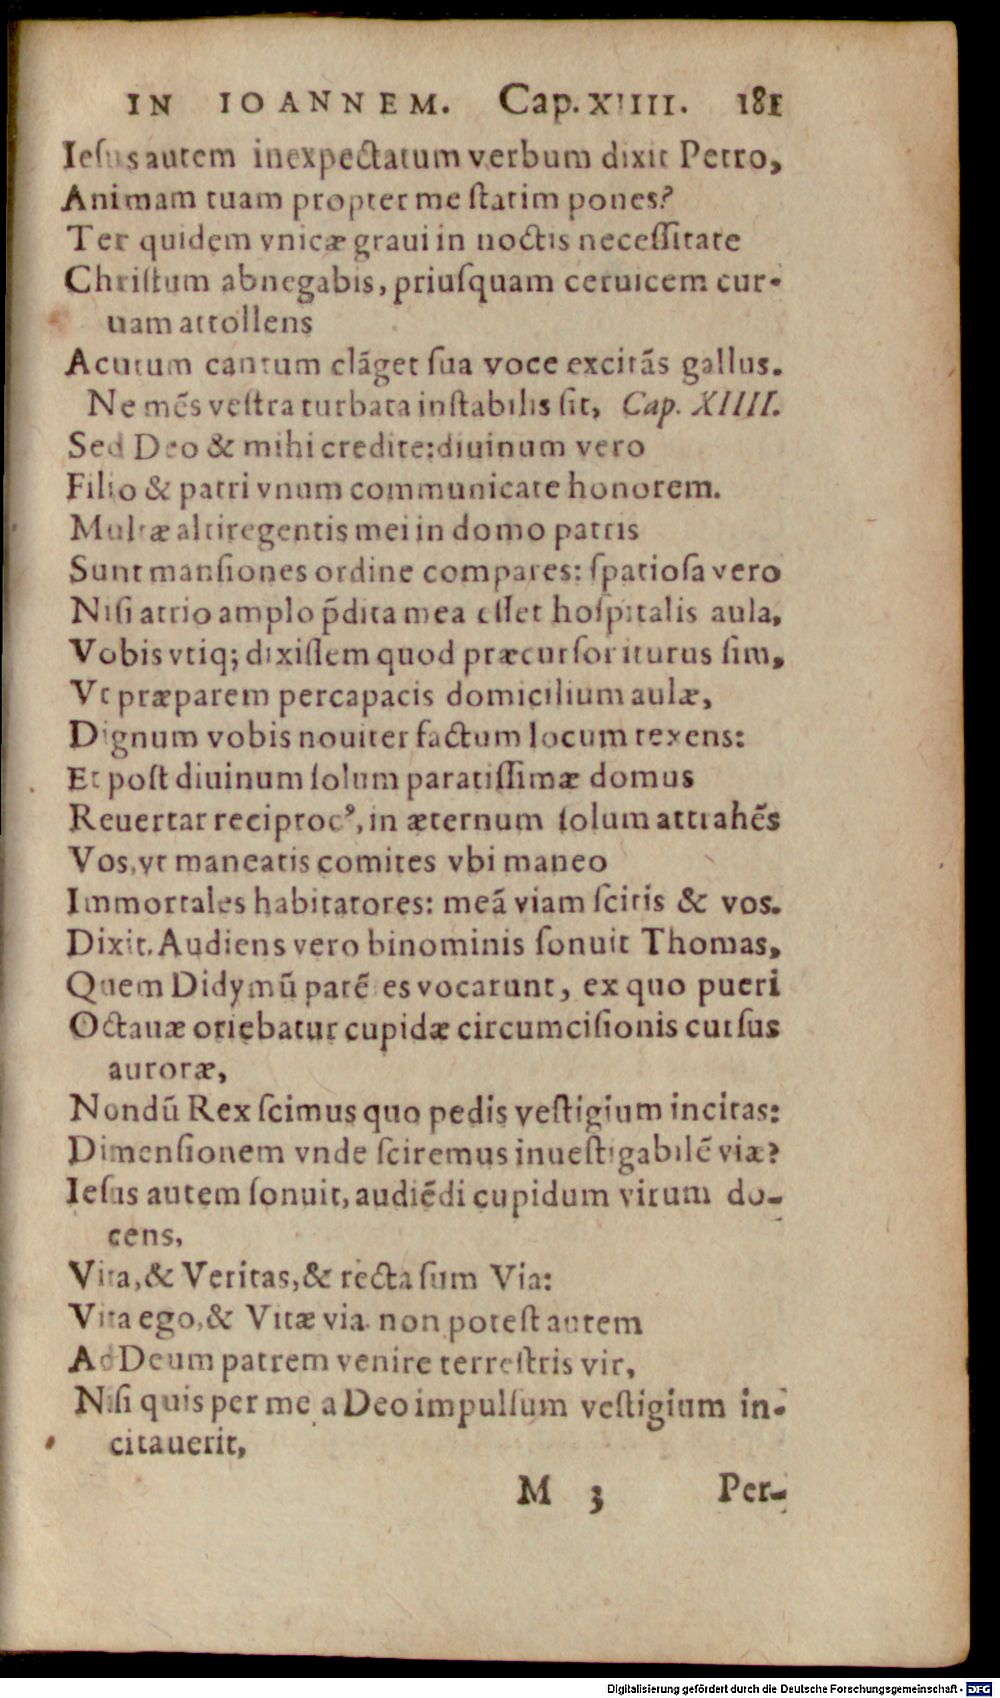 IN IOANNEM. Cap. XIIII. 181
Iesus autem inexpectatum verbum dixit Petro,
Animam tuam propter me ſtatim pones?
Ter quidem vnicæ graui in noctis neceſſitate
Chriſtum abnegabis, priuſquam ceruicem cur-
uam attollens
Acutum cantum clāget ſua voce excitās gallus.
Ne mēs veſtra turbata inſtabilis ſit, Cap. XIIII.
Sed Deo & mihi credite: diuinum vero
Filio & patri vnum communicate honorem.
Multæ altiregentis mei in domo patris
Sunt manſiones ordine compares: ſpatioſa vero
Niſi atrio amplo p̄dita mea eſſet hoſpitalis aula,
Vobis vtiq; dixiſſem quod præcurſor iturus ſim,
Vt præparem percapacis domicilium aulæ,
Dignum vobis nouiter factum locum texens:
Et poſt diuinum ſolum paratiſſimæ domus
Reuertar reciproc⁹, in æternum ſolum attrahēs
Vos, vt maneatis comites vbi maneo
Immortales habitatores: meā viam ſcitis & vos.
Dixit. Audiens vero binominis ſonuit Thomas,
Quem Didymū parētes vocarunt, ex quo pueri
Octauæ oriebatur cupidæ circumciſionis curſus
auroræ,
Nondū Rex ſcimus quo pedis veſtigium incitas:
Dimenſionem vnde sciremus inueſtigabilē viæ?
Ieſus autem ſonuit, audiēdi cupidum virum do-
cens,
Vita, & Veritas, & recta ſum Via:
Vita ego, & Vitæ via. non poteſt autem
Ad Deum patrem venire terreſtris vir,
Niſi quis per me a Deo impulſum veſtigium in-
citauerit,
M 3 Per-
Digitalisierung gefördert durch die Deutsche Forschungsgemeinschaft - DFG